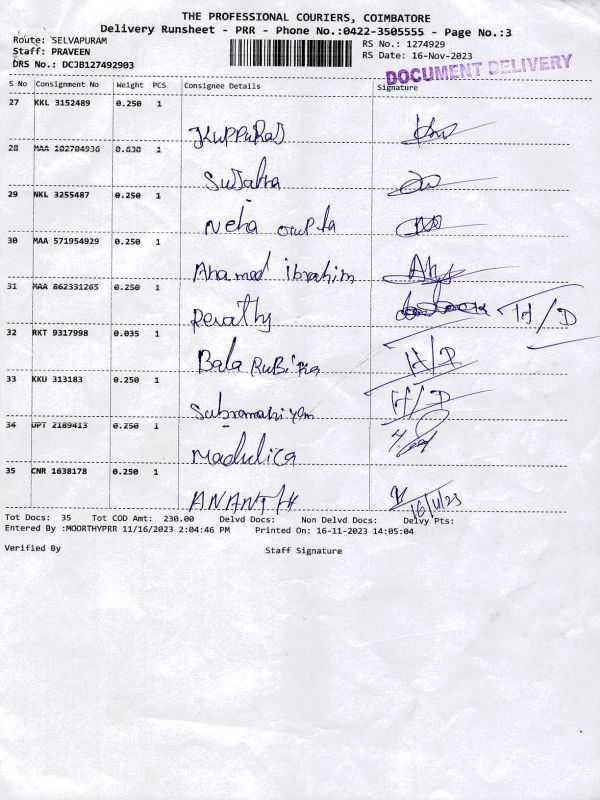 THE PROFESSIONAL COURIERS, COIMBATORE
Delivery Runsheet - PRR - Phone No.:0422-3505555 - Page No.:3
Route: SELVAPURAM
Staff: PRAVEEN
DRS No.: DCJB127492903
RS No.: 1274929
RS Date: 16-Nov-2023
DOCUMENT DELIVERY
S No Consignment No Weight PCS Consignee Details Signature
27 KKL 3152489 0.250 1
Kuppuraj
28 MAA 182704936 0.030 1
Sujatha
29 NKL 3255487 0.250 1
Neha Gupta
30 MAA 571954929 0.250 1
Ahamed ibrahim
31 MAA 862331265 0.250 1
Revathy H/D
32 RKT 9317998 0.035 1
Bala RuBiKa H/D
33 KKU 313183 0.250 1
Subramaniyam H/D
34 UPT 2189413 0.250 1
Madulica
35 CNR 1638178 0.250 1
ANANTH 16/11/23
Tot Docs: 35 Tot COD Amt: 230.00 Delvd Docs: Non Delvd Docs: Delvy Pts:
Entered By :MOORTHYPRR 11/16/2023 2:04:46 PM Printed On: 16-11-2023 14:05:04
Verified By Staff Signature